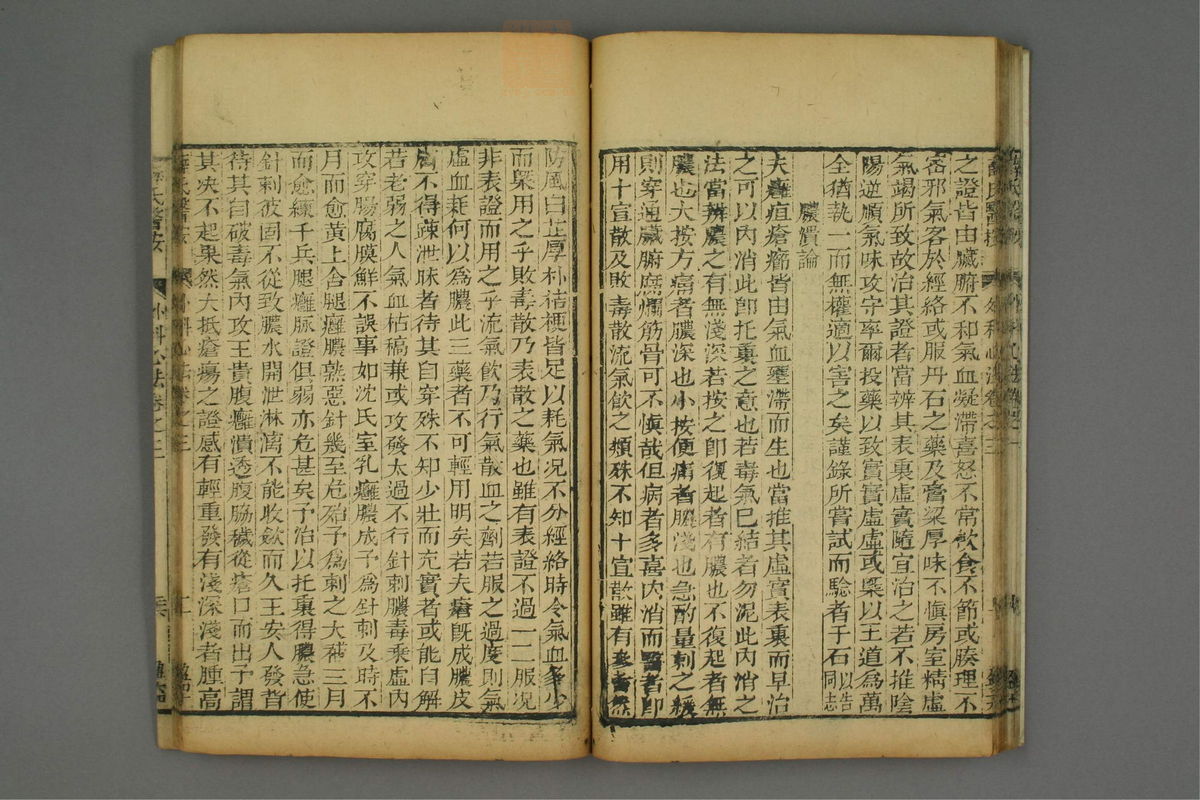 之證皆由臟腑不和氣血凝滯喜怒不常飲食不節或腠理不
密邪氣客於經絡或服丹石之藥及膏粱厚味不慎房室精虛
氣竭所致故治其證者當辨其表裏虛實隨宜治之若不推陰
陽逆順氣味攻守率爾投藥以致實實虛虛或槩以王道為萬
全猶執一而無權適以害之矣謹錄所嘗試而驗者于石以告同志
膿潰論
夫癰疽瘡癤皆由氣血壅滯而生也當推其虛實表裏而早治
之可以內消此卽托裏之意也若毒氣已結者勿泥此內消之
法當辨膿之有無淺深若按之卽復起者有膿也不復起者無
膿也大按方痛者膿深也小按便痛者膿淺也急酌量刺之緩
則穿通臟腑腐爛筋骨可不慎哉但病者多喜內消而醫者卽
用十宣散及敗毒散流氣飲之類殊不知十宣散雖有參芪然
防風白芷厚朴桔梗皆足以耗氣况不分經絡時令氣血多少
而槩用之乎敗毒散乃表散之藥也雖有表證不過一二服况
非表證而用之乎流氣飲乃行氣散血之劑若服之過度則氣
虛血耗何以為膿此三藥者不可輕用明矣若夫瘡旣成膿皮
厚不得疎泄昧者待其自穿殊不知少壯而充實者或能自解
若老弱之人氣血枯稿兼或攻發太過不行針刺膿毒乘虛內
攻穿腸腐膜鮮不誤事如沈氏室乳癰膿成予為針刺及時不
月而愈黃上舍腿癰膿熟惡針幾至危殆予為刺之大補三月
而愈繆千兵腿癰脉證俱弱亦危甚矣予治以托裏得膿急使
針刺彼固不從致膿水開泄淋漓不能收斂而久王安人發背
待其自破毒氣內攻王貴腹癰潰透腹脇穢從瘡口而出予謂
其决不起果然大抵瘡瘍之證感有輕重發有淺深淺者腫高
薛氏醫按 外科心法卷之三